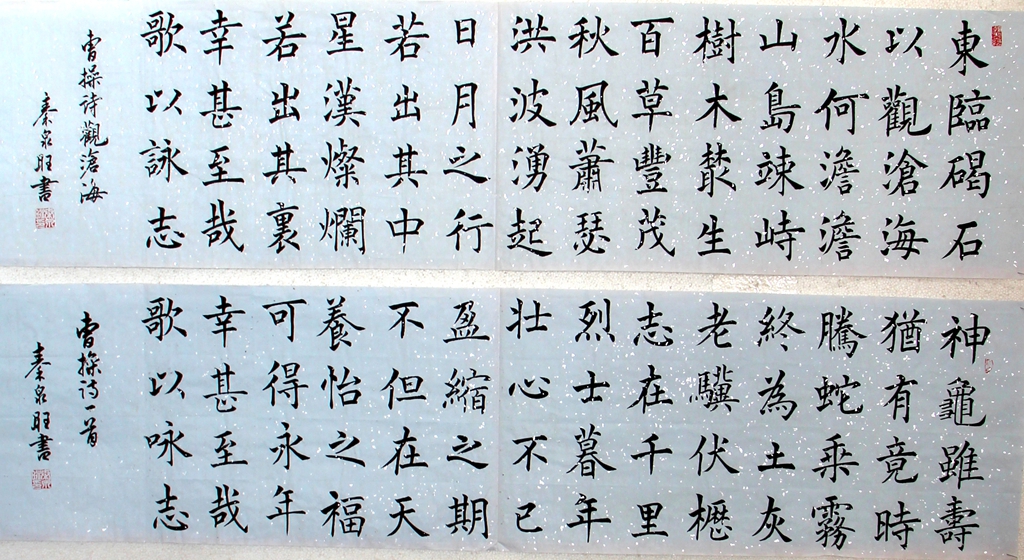 東臨碣石
以觀滄海
水何澹澹
山島竦峙
樹木叢生
百草豐茂
秋風蕭瑟
洪波湧起
日月之行
若出其中
星漢燦爛
若出其裏
幸甚至哉
歌以詠志
曹操詩觀滄海
秦泉旺書
神龜雖壽
猶有竟時
騰蛇乘霧
終為土灰
老驥伏櫪
志在千里
烈士暮年
壯心不已
盈縮之期
不但在天
養怡之福
可得永年
幸甚至哉
歌以咏志
曹操詩一首
秦泉旺書